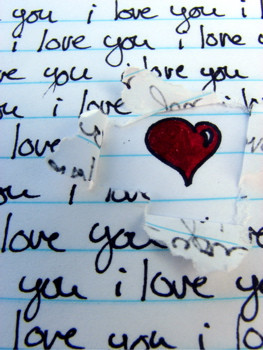 you i love you i l
i love you i love
you i love you
i love you
love
you
love you
love
you i love you
love you i lo